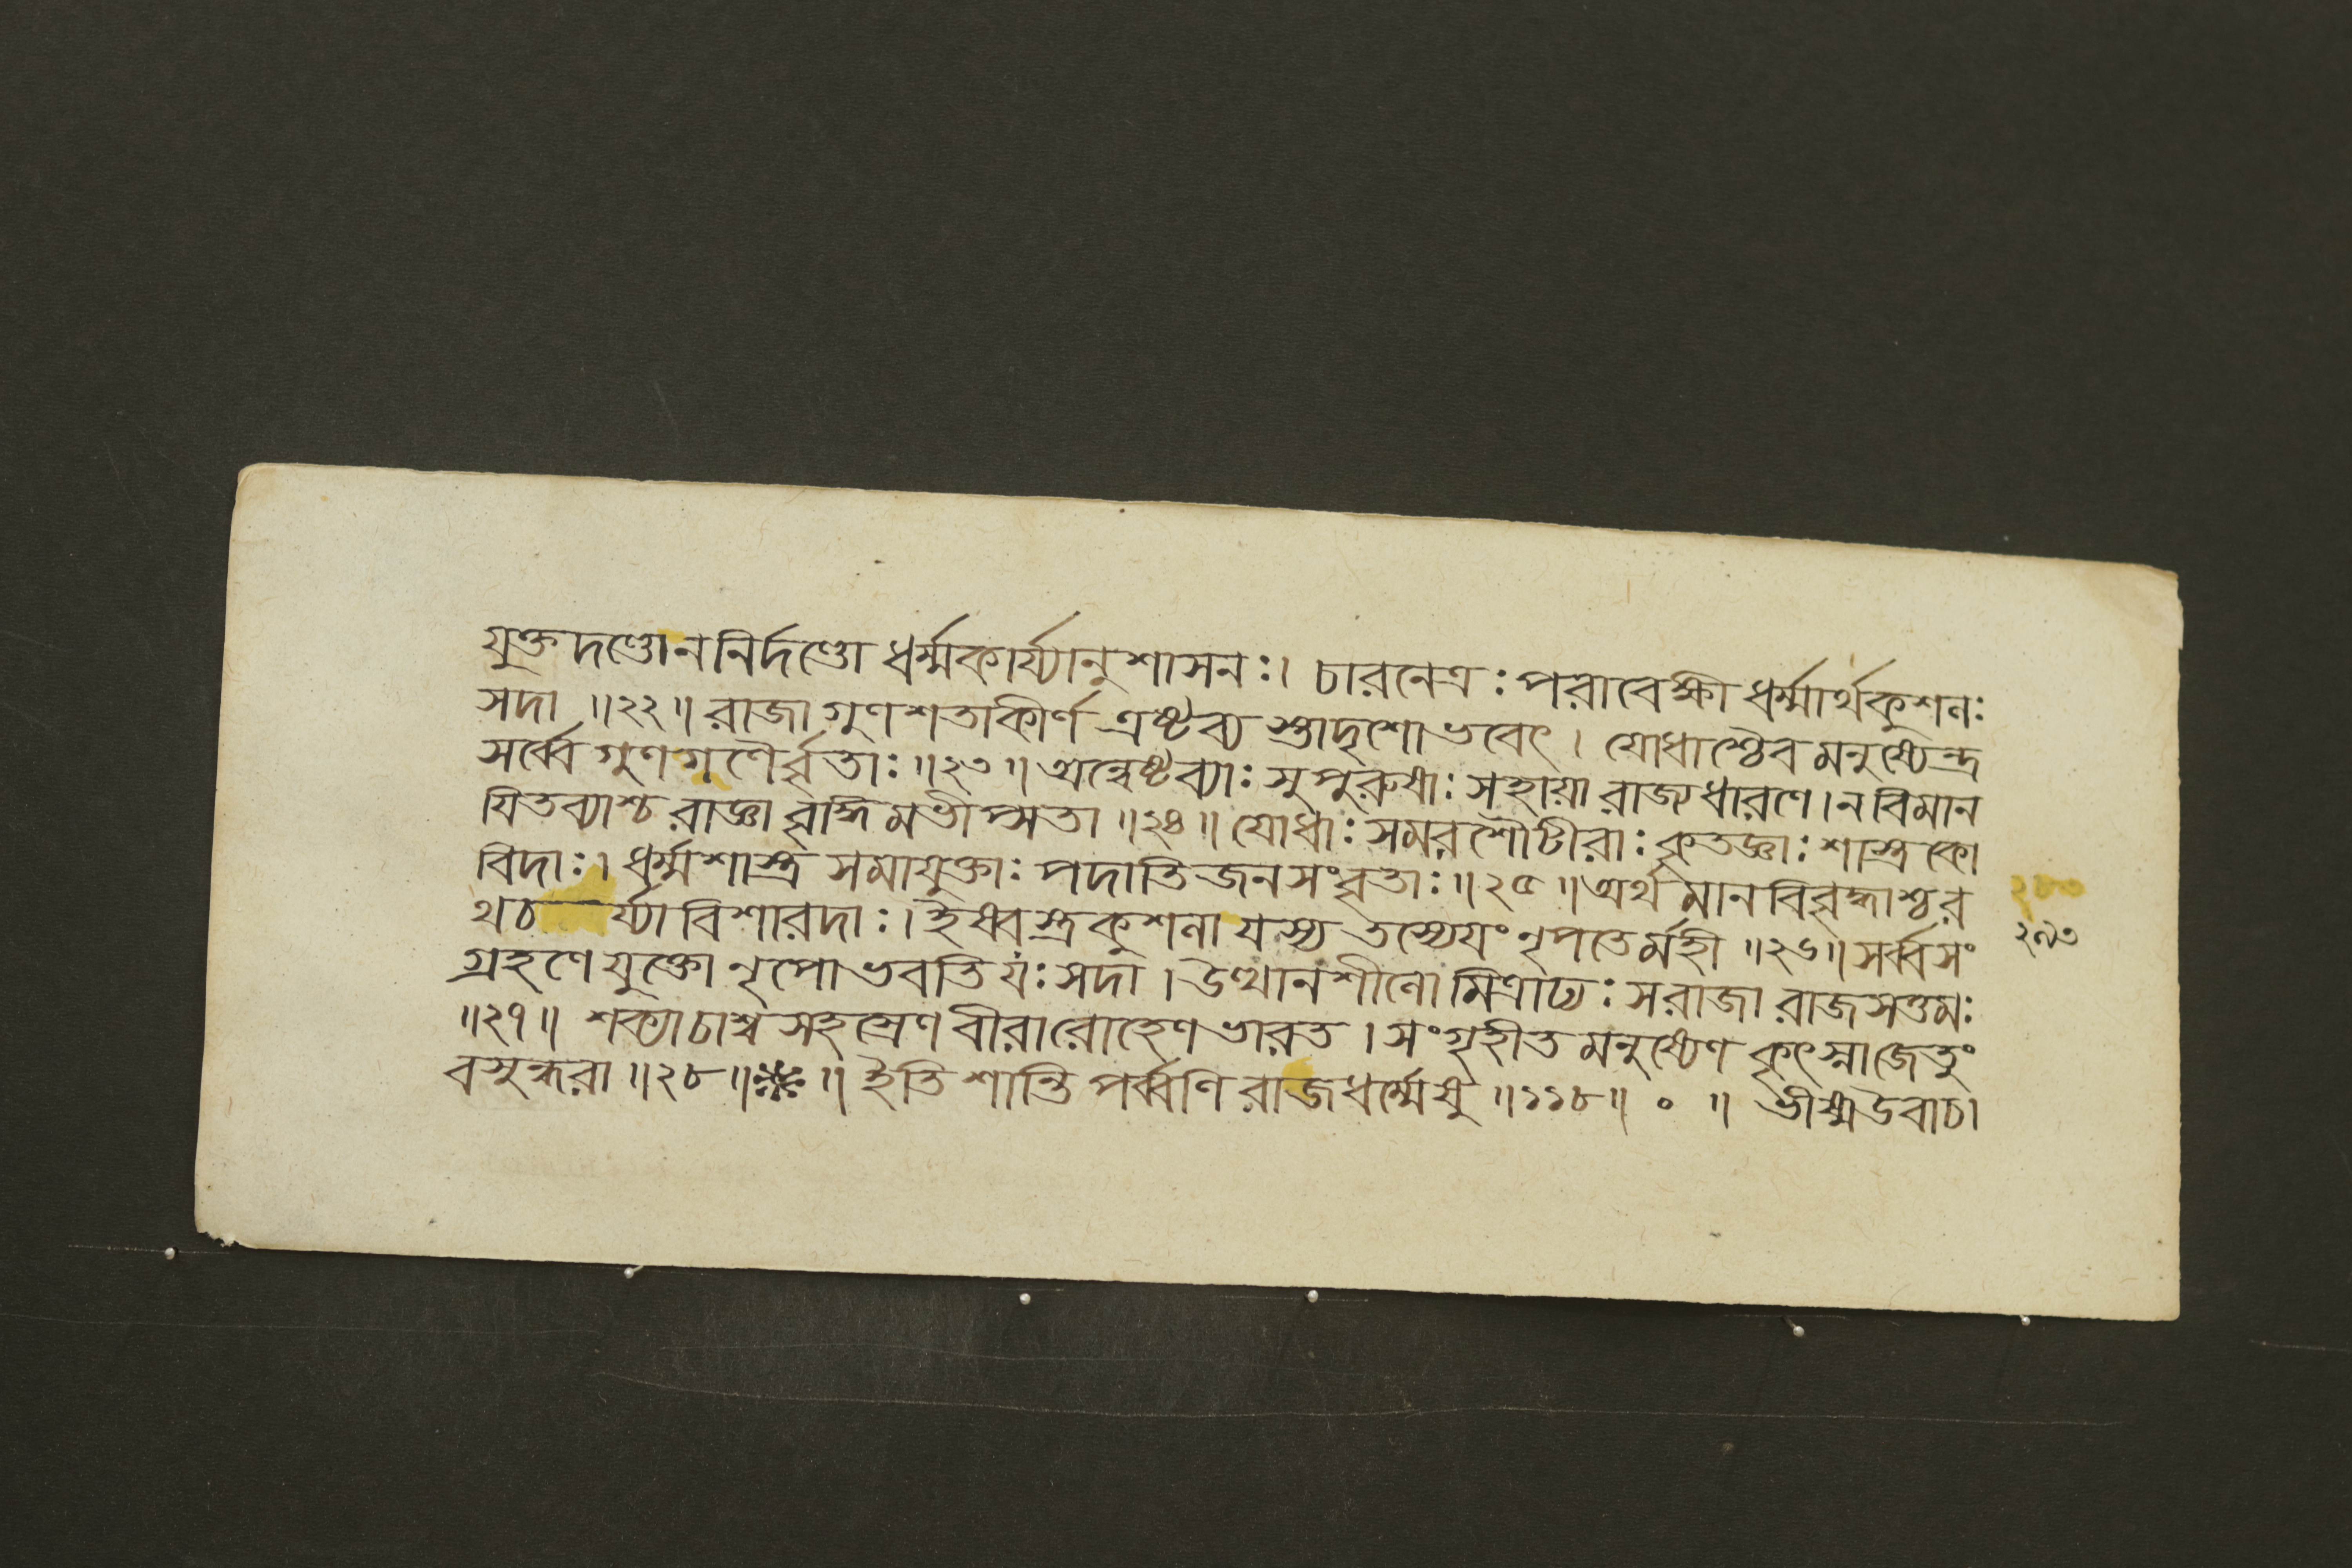 যুক্তদণ্ডোননির্দণ্ডো ধর্ম্মকার্য্যানুশাসনঃ। চারনেত্রঃ পরাবেক্ষী ধর্ম্মার্থকুশলঃ
সদা ॥২২॥ রাজা গুণশতাকীর্ণ এষ্টব্য স্তাদৃশো ভবেৎ। যোধাশ্চৈব মনুষ্যেন্দ্র
সর্ব্বে গুণগণৈর্বৃতাঃ ॥২৩॥ অন্বেষ্টব্যাঃ সুপুরুষাঃ সহায়া রাজ্যধারণে। ন বিমান
যিতব্যাশ্চ রাজ্ঞা বৃদ্ধিমভীপ্সতা ॥২৪॥ যোধাঃ সমরশৌটীরাঃ কৃতজ্ঞাঃ শাস্ত্রকো
বিদাঃ। ধর্ম্মশাস্ত্রসমাযুক্তাঃ পদাতিজনসংবৃতাঃ ॥২৫॥ অর্থমানবিবৃদ্ধাশ্চ র
থচ র্য্যা বিশারদাঃ। ইষ্বস্ত্রকুশলা যস্য তস্যেয়ং নৃপতের্মহী ॥২৬॥ সর্ব্বসং
২৯৩
গ্রহণে যুক্তো নৃপো ভবতি যঃ সদা। উত্থানশীলো মিত্রাঢ্যঃ স রাজা রাজসত্তমঃ
॥২৭॥ শক্যাচাশ্ব সহস্রেণ বীরারোহেণ ভারত। সংগৃহীত মনুষ্যেণ কৃৎস্নাজেতুং
বসুন্ধরা ॥২৮॥ ॥ ইতি শান্তিপর্ব্বণি রাজধর্ম্মেষু ॥১১৮॥ ০ ॥ ভীষ্মউবাচ।